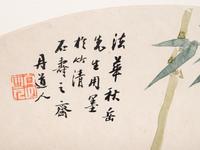 法華秋岳
先生用墨
於竹清
石壽之齋
丹道人